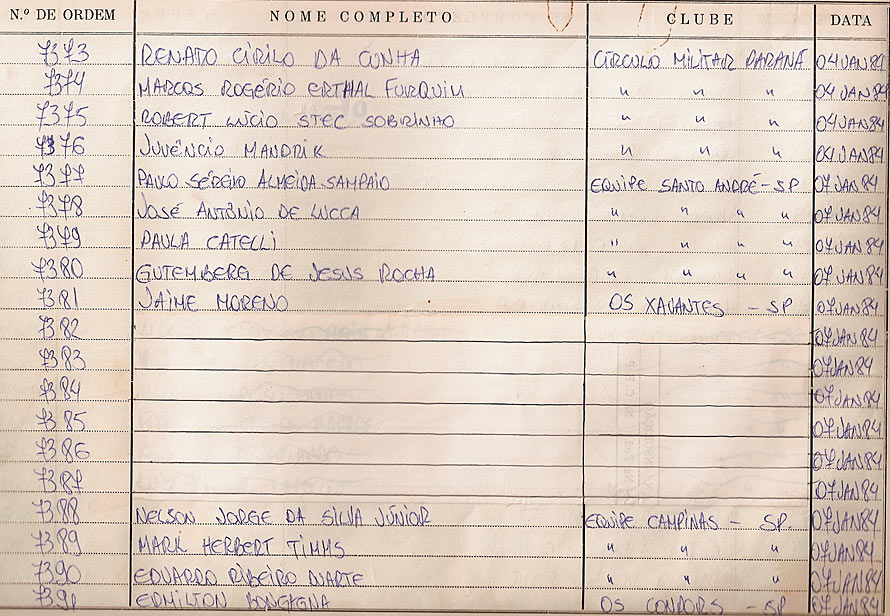 N.º DE ORDEM NOME COMPLETO CLUBE DATA
7373 RENATO CIRILO DA CUNHA CÍRCULO MILITAR PARANÁ 04 JAN 84
7374 MARCOS ROGÉRIO ERTHAL FURQUIM " " " 04 JAN 84
7375 ROBERT LÚCIO STEC SOBRINHO " " " 04 JAN 84
7376 JUVÊNCIO MANDRIK " " " 04 JAN 84
7377 PAULO SÉRGIO ALMEIDA SAMPAIO EQUIPE SANTO ANDRÉ - SP 07 JAN 84
7378 JOSÉ ANTÔNIO DE LUCCA " " " " 07 JAN 84
7379 PAULA CATELLI " " " " 07 JAN 84
7380 GUTEMBERG DE JESUS ROCHA " " " " 07 JAN 84
7381 JAIME MORENO OS XAVANTES - SP 07 JAN 84
7382 07 JAN 84
7383 07 JAN 84
7384 07 JAN 84
7385 07 JAN 84
7386 07 JAN 84
7387 07 JAN 84
7388 NELSON JORGE DA SILVA JÚNIOR EQUIPE CAMPINAS - SP 07 JAN 84
7389 MARK HERBERT TIMMS " " " 07 JAN 84
7390 EDUARDO RIBEIRO DUARTE " " " 07 JAN 84
7391 EDMILTON OS CONDORS - SP 07 JAN 84